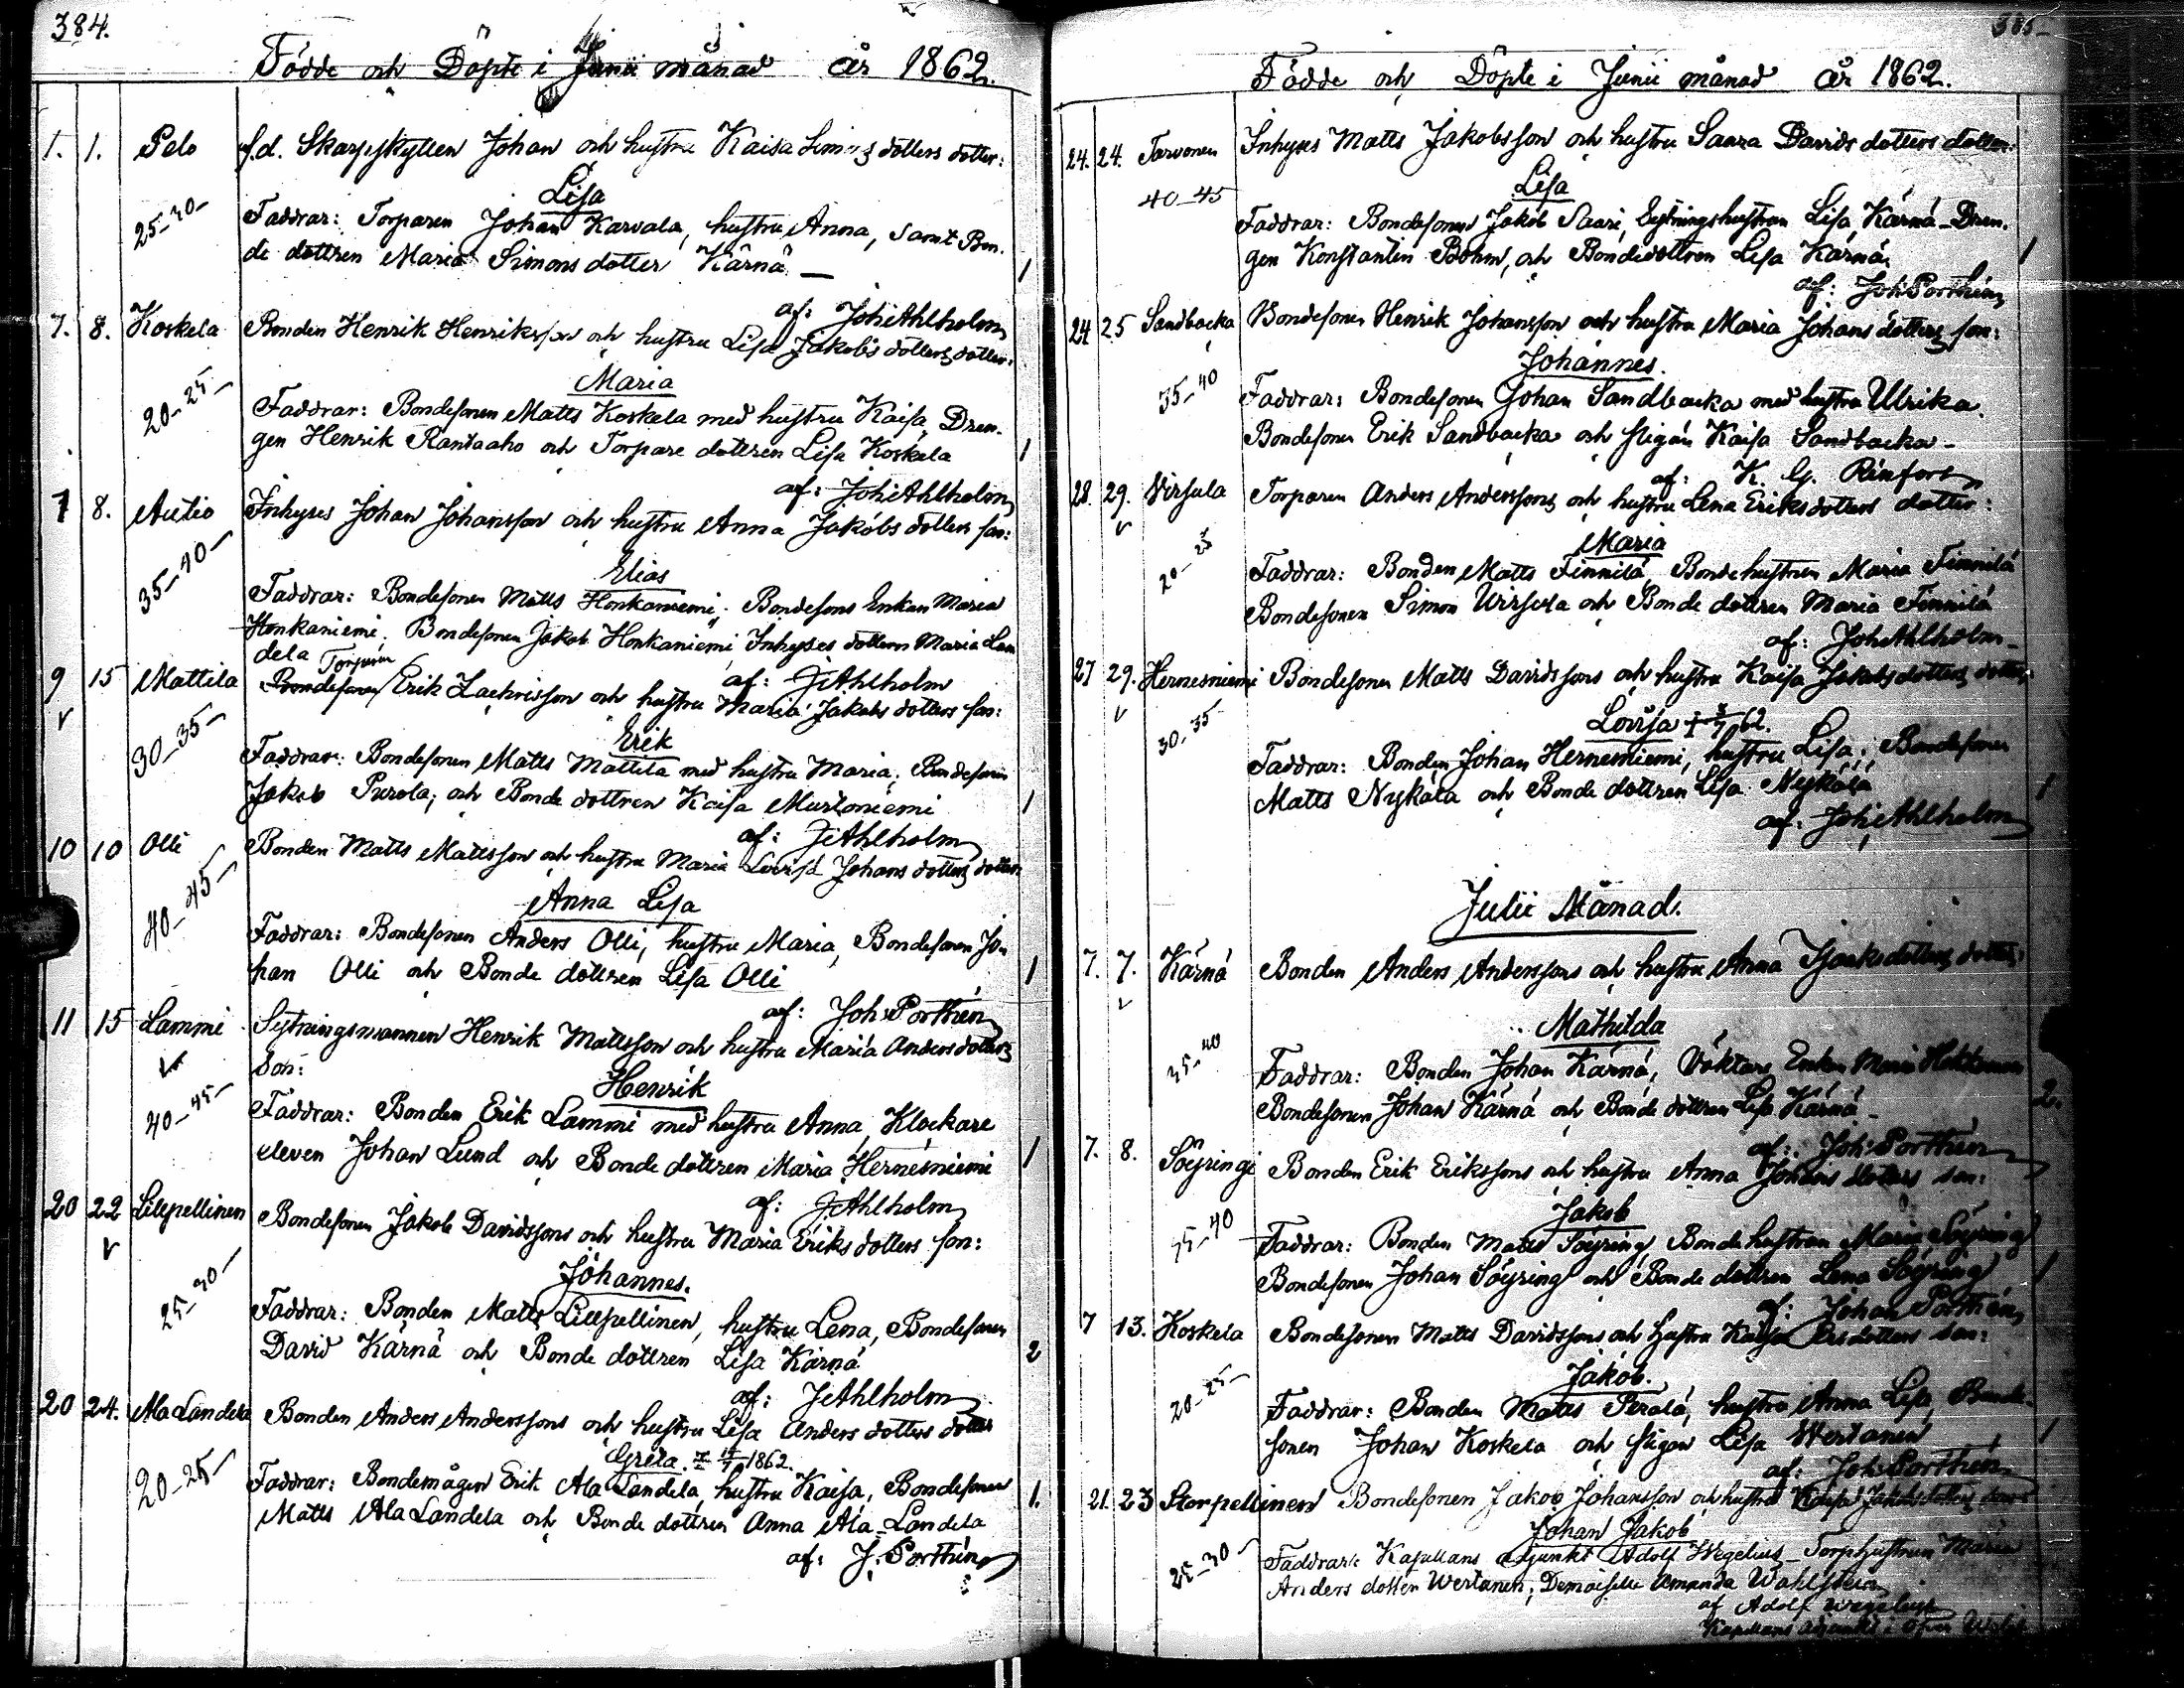 384.
Födde och Döpte i Junii månad år 1862.
1. 1. Pelo f.d. Skarpskytten Johan och hustru Kaisa Simons dotters dotter:
Lisa
25-30- Faddrar: Torparen Johan Karvala, hustru Anna, samt Bon-
de dottren Maria Simons dotter Kärnä — 1
af: Joh: Ahlholm
7. 8. Koskela Bonden Henrik Henriksson och hustru Lisa Jakobs dotters dotter:
Maria
20-25- Faddrar: Bondesonen Matts Koskela med hustru Kaisa, Dren-
gen Henrik Rantaaho och Torpare dottren Lisa Koskela 1
af: Joh: Ahlholm
7 8. Autio Inhyses Johan Johansson och hustru Anna Jakobs dotters son:
Elias
35-40- Faddrar: Bondesonen Matts Honkaniemi, Bondesons Enkan Maria
Honkaniemi, Bondesonen Jakob Honkaniemi Inhyses dottern Maria Lan
dela
af: J. Ahlholm
9 15 Mattila Bondesonen Torparen Erik Zachrisson och hustru Maria Jakobs dotters son:
Erik
30-35- Faddrar: Bondesonen Matts Mattila med hustru Maria; Bondesonen
Jakob Purola, och Bonde dottren Kaisa Murtoniemi 1
af: J. Ahlholm
10 10 Olli Bonden Matts Mattsson och hustru Maria Lovisa Johans dotters dotter
Anna Lisa
40-45- Faddrar: Bondesonen Anders Olli, hustru Maria, Bondesonen Jo-
han Olli och Bonde dottren Lisa Olli 1
af: Joh: Porthén
11 15 Lammi Sytningsmannen Henrik Mattsson och hustru Maria Anders dotters
Son:
Henrik
40-45- Faddrar: Bonden Erik Lammi med hustru Anna, Klockare
eleven Johan Lund och Bonde dottren Maria Hernesniemi 1
af: J. Ahlholm
20 22 Lillpellinen Bondesonen Jakob Davidssons och hustru Maria Eriks dotters son:
Johannes.
25-30- Faddrar: Bonden Matts Lillpellinen, hustru Lena, Bondesonen
David Kärnä och Bonde dottren Lisa Kärnä 2
af: J. Ahlholm
20 24. Ala Landela Bonden Anders Anderssons och hustru Lisa Anders dotters dotter
Greta. 1862.
20-25- Faddrar: Bondemågen Erik Ala Landela, hustru Kaisa, Bondesonen 1.
Matts Ala Landela och Bonde dottren Anna Ala-Landela
af: J. Porthén
385-
Födde och Döpte i Junii månad år 1862.
24. 24. Tarvonen Inhyses Matts Jakobsson och hustru Saara Davids dotters dotter:
Lisa
40-45 Faddrar: Bondesonen Jakob Saari, Sytningshustrun Lisa Kärnä-Dren-
gen Konstantin Böhm, och Bondedottren Lisa Kärnä. 1
af: Joh: Porthén
24 25 Sandbacka Bondesonen Henrik Johansson och hustru Maria Johans dotters son:
Johannes.
35-40 Faddrar: Bondesonen Johan Sandbacka med hustru Ulrika.
Bondesonen Erik Sandbacka och Pigan Kaisa Sandbacka-
af: K. G. Renfors
28. 29. Virsula Torparen Anders Anderssons och hustru Lena Eriksdotters dotter:
Maria
20-25 Faddrar: Bonden Matts Finnilä, Bondehustrun Maria Finnilä
Bondesonen Simon Wirsula och Bonde dottren Maria Finnilä
af: Joh: Ahlholm-
27 29. Hernesniemi Bondesonen Matts Davidssons och hustru Kaisa Jakobsdotters dotter,
Lovisa † 3/7 62.
30-35- Faddrar: Bonden Johan Hernesniemi, hustru Lisa; Bondesonen
Matts Nykälä och Bonde dottren Lisa Nykälä 1
af: Joh: Ahlholm
Julii Månad.
7. 7. Kärnä Bonden Anders Anderssons och hustru Anna Isaaksdotters dotter:
Mathilda
35-40 Faddrar: Bonden Johan Kärnä, Väktare Enkan Maria
Bondesonen Johan Kärnä och Bonde dottren Lisa Kärnä- 2.
af: Joh: Porthén
7. 8. Söyringi Bonden Erik Erikssons och hustru Anna Johans dotters son:
Jakob
35-40 Faddrar: Bonden Matts Söyring Bondehustrun Maria Söyring
Bondesonen Johan Söyring och Bonde dottren Lena Söyring 1
af: Johan Porthén,
7 13. Koskela Bondesonen Matts Davidssons och Hustru Kaisa dotters son:
Jakob.
20-25- Faddrar: Bonden Matts Perälä, hustru Anna Lisa, Bonde-
sonen Johan Koskela och Pigan Lisa Wertanen 1
af: Joh: Porthén
21. 23 Storpellinen Bondesonen Jakob Johansson och hustru Kaisa Jakobsdotters son
Johan Jakob
25-30- Faddrar: Kapellans adjunkt Adolf Wegelius-Torphustrun Maria
Anders dotter Wertanen; Demoiselle Amanda Wahlstein
af Adolf Wegelius
Kapellans adjunkt i